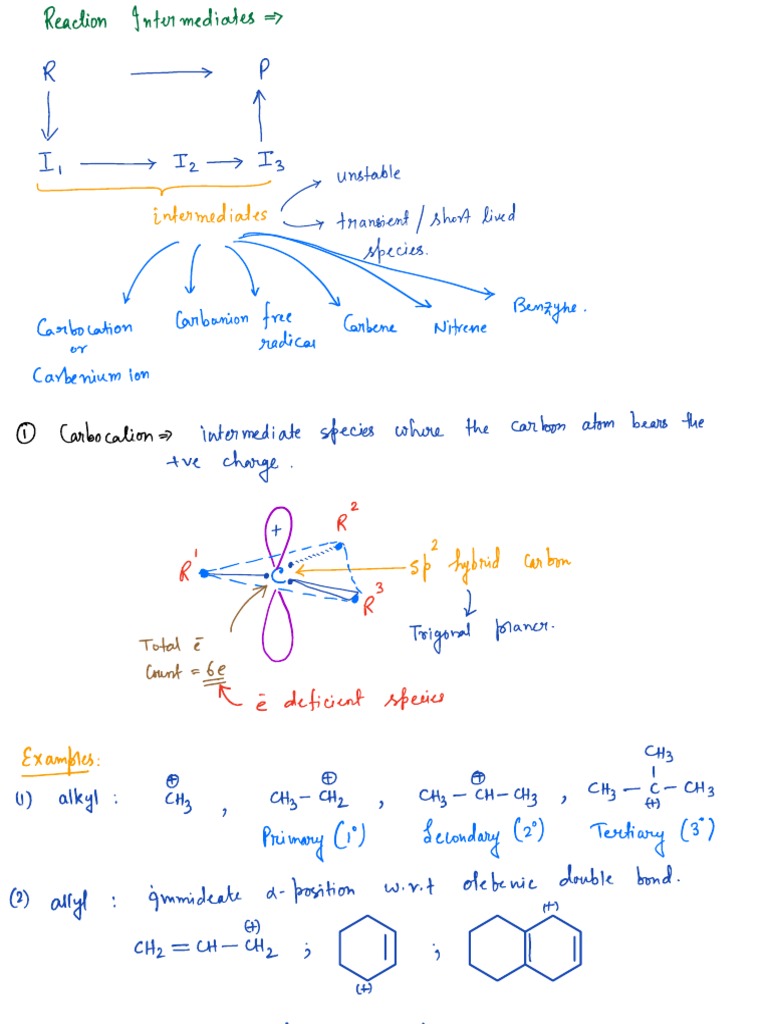 Reaction Intermediates ⇒
R ⟶ P
I₁ ⟶ I₂ ⟶ I₃
unstable
intermediates
transient / short lived
species.
Carbocation
or
Carbenium ion
Carbanion
free
radical
Carbene
Nitrene
Benzyne.
① Carbocation ⇒ intermediate species where the carbon atom bears the
+ve charge.
+
R¹
R²
R³
C
sp² hybrid carbon
Trigonal planer.
Total ē
Count = 6e
ē deficient species
Examples:
(1) alkyl : ⊕CH₃ , CH₃–⊕CH₂ , CH₃–⊕CH–CH₃ , CH₃–C(+)(CH₃)–CH₃
Primary (1°)
Secondary (2°)
Tertiary (3°)
(2) allyl : immideate α-position w.r.t olebenic double bond.
CH₂=CH–(+)CH₂ ; (+) ; (+)